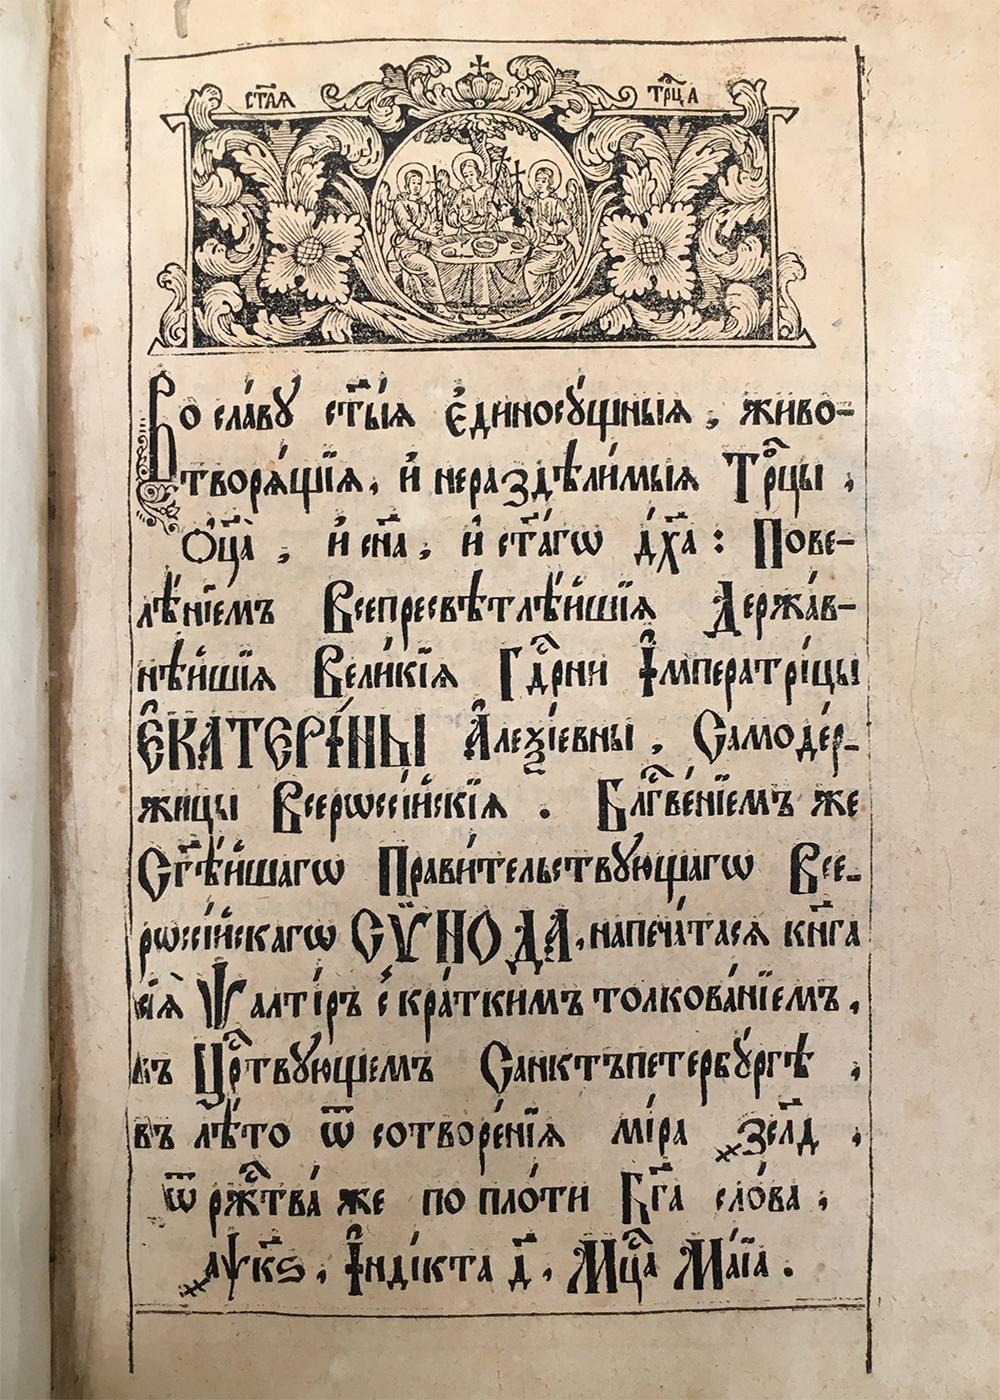 ст҃ая трⷪ҇ца
Во сла́вꙋ ст҃ы́ѧ є҆диносꙋ́щныѧ, живо-
творѧ́щїѧ, и҆ нераздѣли́мыѧ Трⷪ҇цы,
Ѻ҆ц҃а̀, и҆ сн҃а, и҆ ст҃а́гѡ дх҃а: Пове-
лѣ́нїемъ Всепресвѣтлѣ́йшїѧ Держа́в-
нѣйшїѧ Вели́кїѧ Гдⷭ҇рни І҆мператрі́цы
Е҆КАТЕРІ́НЫ А҆леѯі́евны, Самоде́р-
жицы Всерѡссі́йскїѧ. Блгⷭ҇ве́нїемъ же
Ст҃ѣ́йшагѡ Прави́тельствꙋющагѡ Все-
рѡссі́йскагѡ СѴНО́ДА, напеча́тасѧ кн҃га
сїѧ̀ Ѱалті́рь с̾ кра́ткимъ толкова́нїемъ,
въ Црⷭ҇твꙋющемъ Санктъпетербꙋ́ргѣ,
въ лѣ́то ѿ сотворе́нїѧ мі́ра ҂зсл҃д,
ѿ ржⷭ҇тва́ же по пло́ти Бг҃а сло́ва,
҂аѱк҃ѕ, І҆нді́кта д҃, Мцⷭ҇а Ма́їа.